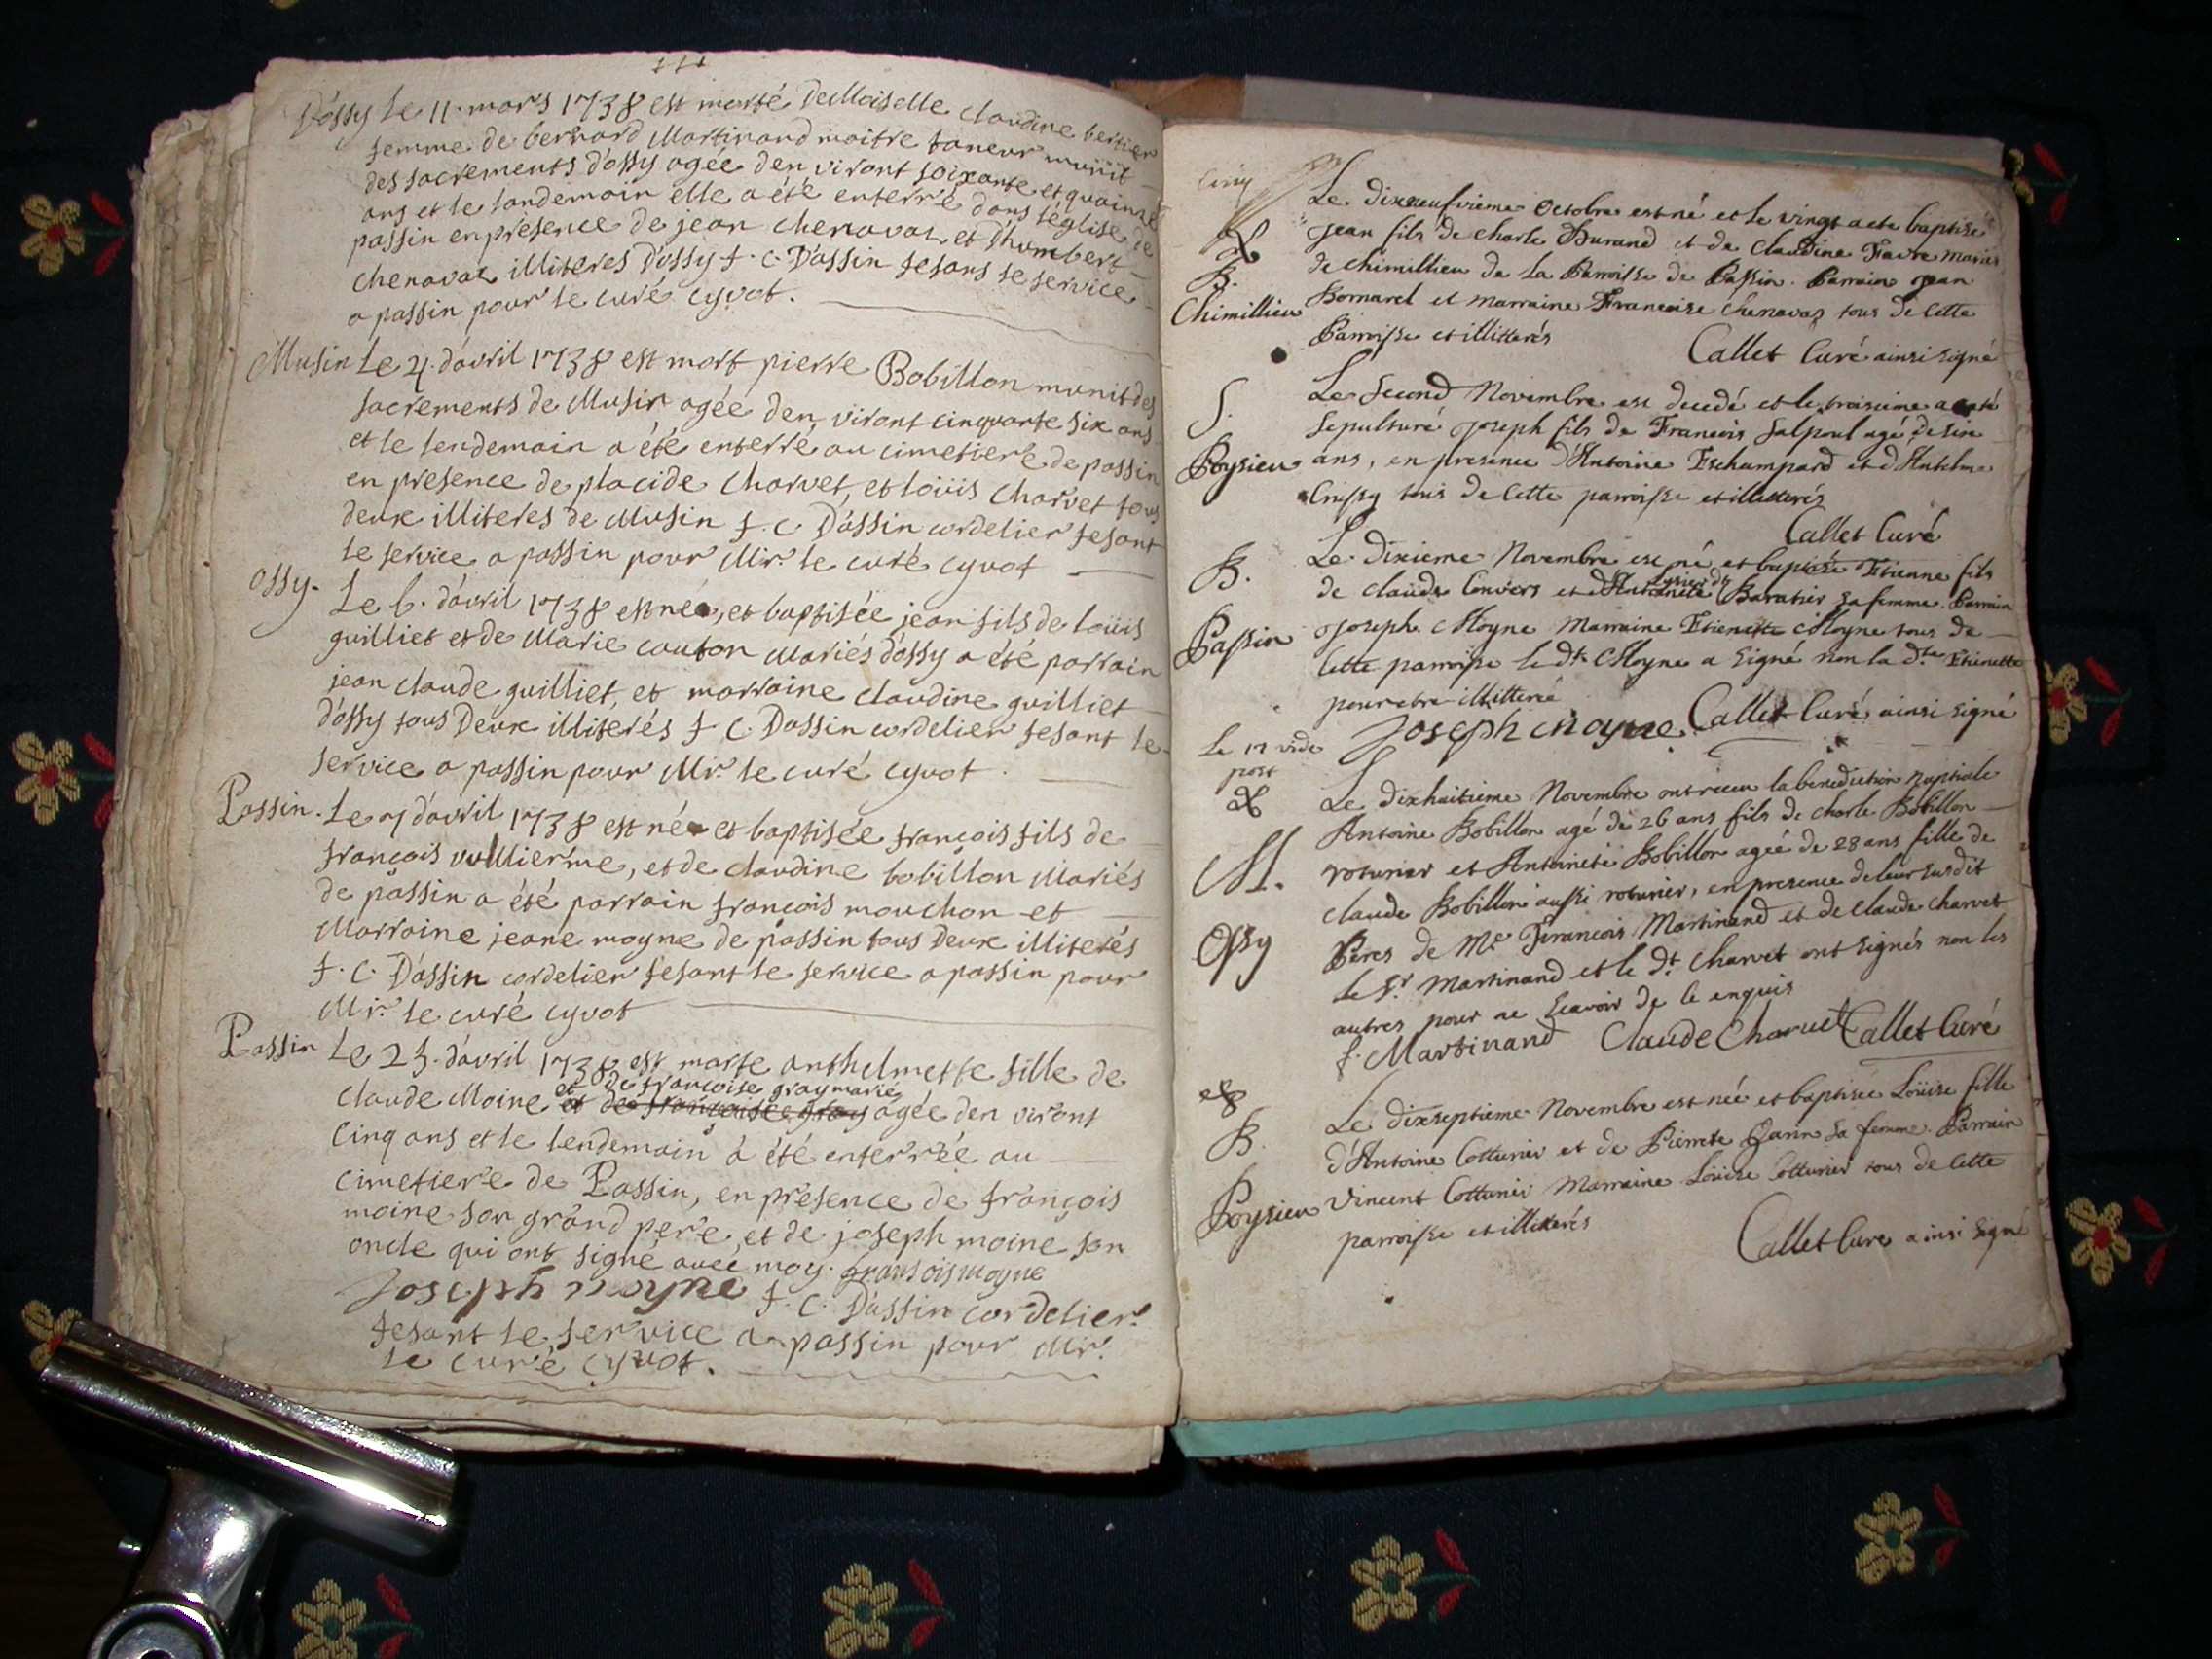 D'ossy Le 11. mars 1738 est morte deMoiselle claudine bertier
femme de bernard Martinand maitre taneur munit
des sacrements d'ossy agée den viront soixante et quainze
ans et le landemain elle a été enterré dans l'église de
passin en présence de jean chenavaz et d'humbert
chenavaz illiteres d'ossy f. C. D'assin fesans le service
a passin pour le curé cyvot.
Musin Le 4. d'avril 1738 est mort pierre Bobillon munit des
sacrements de Musin agée den viront cinquante six ans
et le lendemain a été enterré au cimetiere de passin
en presence de placide charvet, et loüis charvet tous
deux illiteres de Musin f. C. D'assin cordelier fesant
le service a passin pour Mir. le curé cyvot
ossy. Le 6. d'avril 1738 est né, et baptisée jean fils de loüis
guilliet et de Marie couton Mariés d'ossy a été parrain
jean claude guilliet, et marraine claudine guilliet
d'ossy tous deux illiterés f C. Dassin cordelier fesant le
service a passin pour Mr. le curé cyvot.
Passin. Le 7 d'avril 1738 est né et baptisée françois fils de
françois vulliermé, et de claudine bobillon Mariés
de passin a été parrain françois mouchon et
Marraine jeane moyne de passin tous deux illiterés
f. C. D'assin cordelier fesant le service a passin pour
Mr. le curé cyvot
Passin Le 23. d'avril 1738 est morte anthelmette fille de
et de françoise gray mariés
claude Moine et de françoise gray agée den viront
cinq ans et le lendemain à été enterrée au
cimetiere de Passin, en présence de françois
moine son grand pere, et de joseph moine son
oncle qui ont signé avec moy. fransois moyne
Joseph moyne f. C. D'assin cordelier.
fesant le service a passin pour Mr.
le curé cyvot.
cinq
Le dixneufvieme Octobre est né et le vingt a ete baptisé
Jean fils de charle Durand et de Claudine Favre mariés
B. de chimillieu de la Parroisse de Passin. Parrain Jean
Chimillieu Bornarel et marraine Francoise Chenavaz tous de cette
Parroisse et illitterés Callet Curé ainsi signé
S. Le Second Novembre est decedé et le troisieme a eté
Sepulturé Joseph fils de Francois Salpoul agé de six
Poysieu ans, en presence d'Antoine Eschampard et d'Antelme
Crussy tous de cette parroisse et illitterés
Callet Curé
B. Le dixieme Novembre est né et baptisée Etienne fils
de claude Convers et d'Antoinete Baratier sa femme. Parrain
Passin Joseph Moyne Marraine Etienette Moyne tous de
cette parroisse le dt. Moyne a signé non la dte. Etienette
pour etre illitterée
Joseph moyne Callet Curé ainsi signé
Le 17 vide
post
Le dixhuitieme Novembre ont receu la benediction nuptiale
Antoine Bobillon agé de 26 ans fils de charle Bobillon
M. roturier et Antoineté Bobillon ageé de 28 ans fille de
claude Bobillon aussi roturier, en presence de leur susdit
Ossy Péres de Me. Francois Martinand et de claude charvet
le Sr. Martinand et le dt. Charvet ont signés non les
autres pour ne scavoir de ce enquis
f. Martinand Claude Charvet Callet Curé
B. Le dixseptieme Novembre est née et baptisée Loüise fille
d'Antoine Cotturier et de Pierrete Gann sa femme. Parrain
Poysieu Vincent Cotturier Marraine Loüise Cotturier tous de cette
parroisse et illitterés
Callet Cure ainsi signé